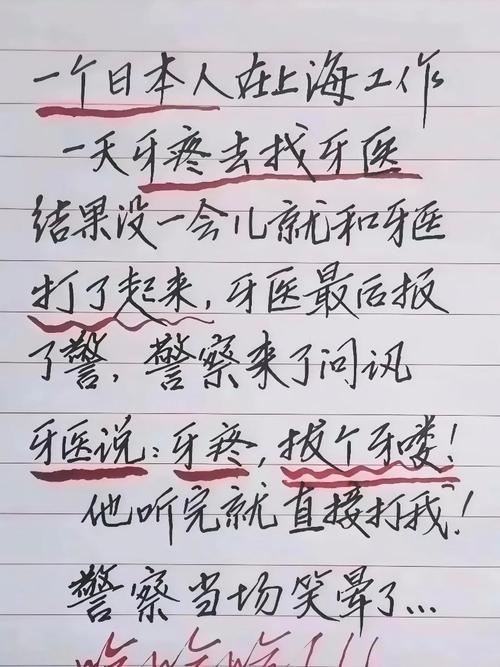 一个日本人在上海工作
一天牙疼去找牙医
结果没一会儿就和牙医
打了起来，牙医最后报
了警，警察来了问讯
牙医说：牙疼，拔个牙喽！
他听完就直接打我！
警察当场笑晕了...
哈哈哈！！！